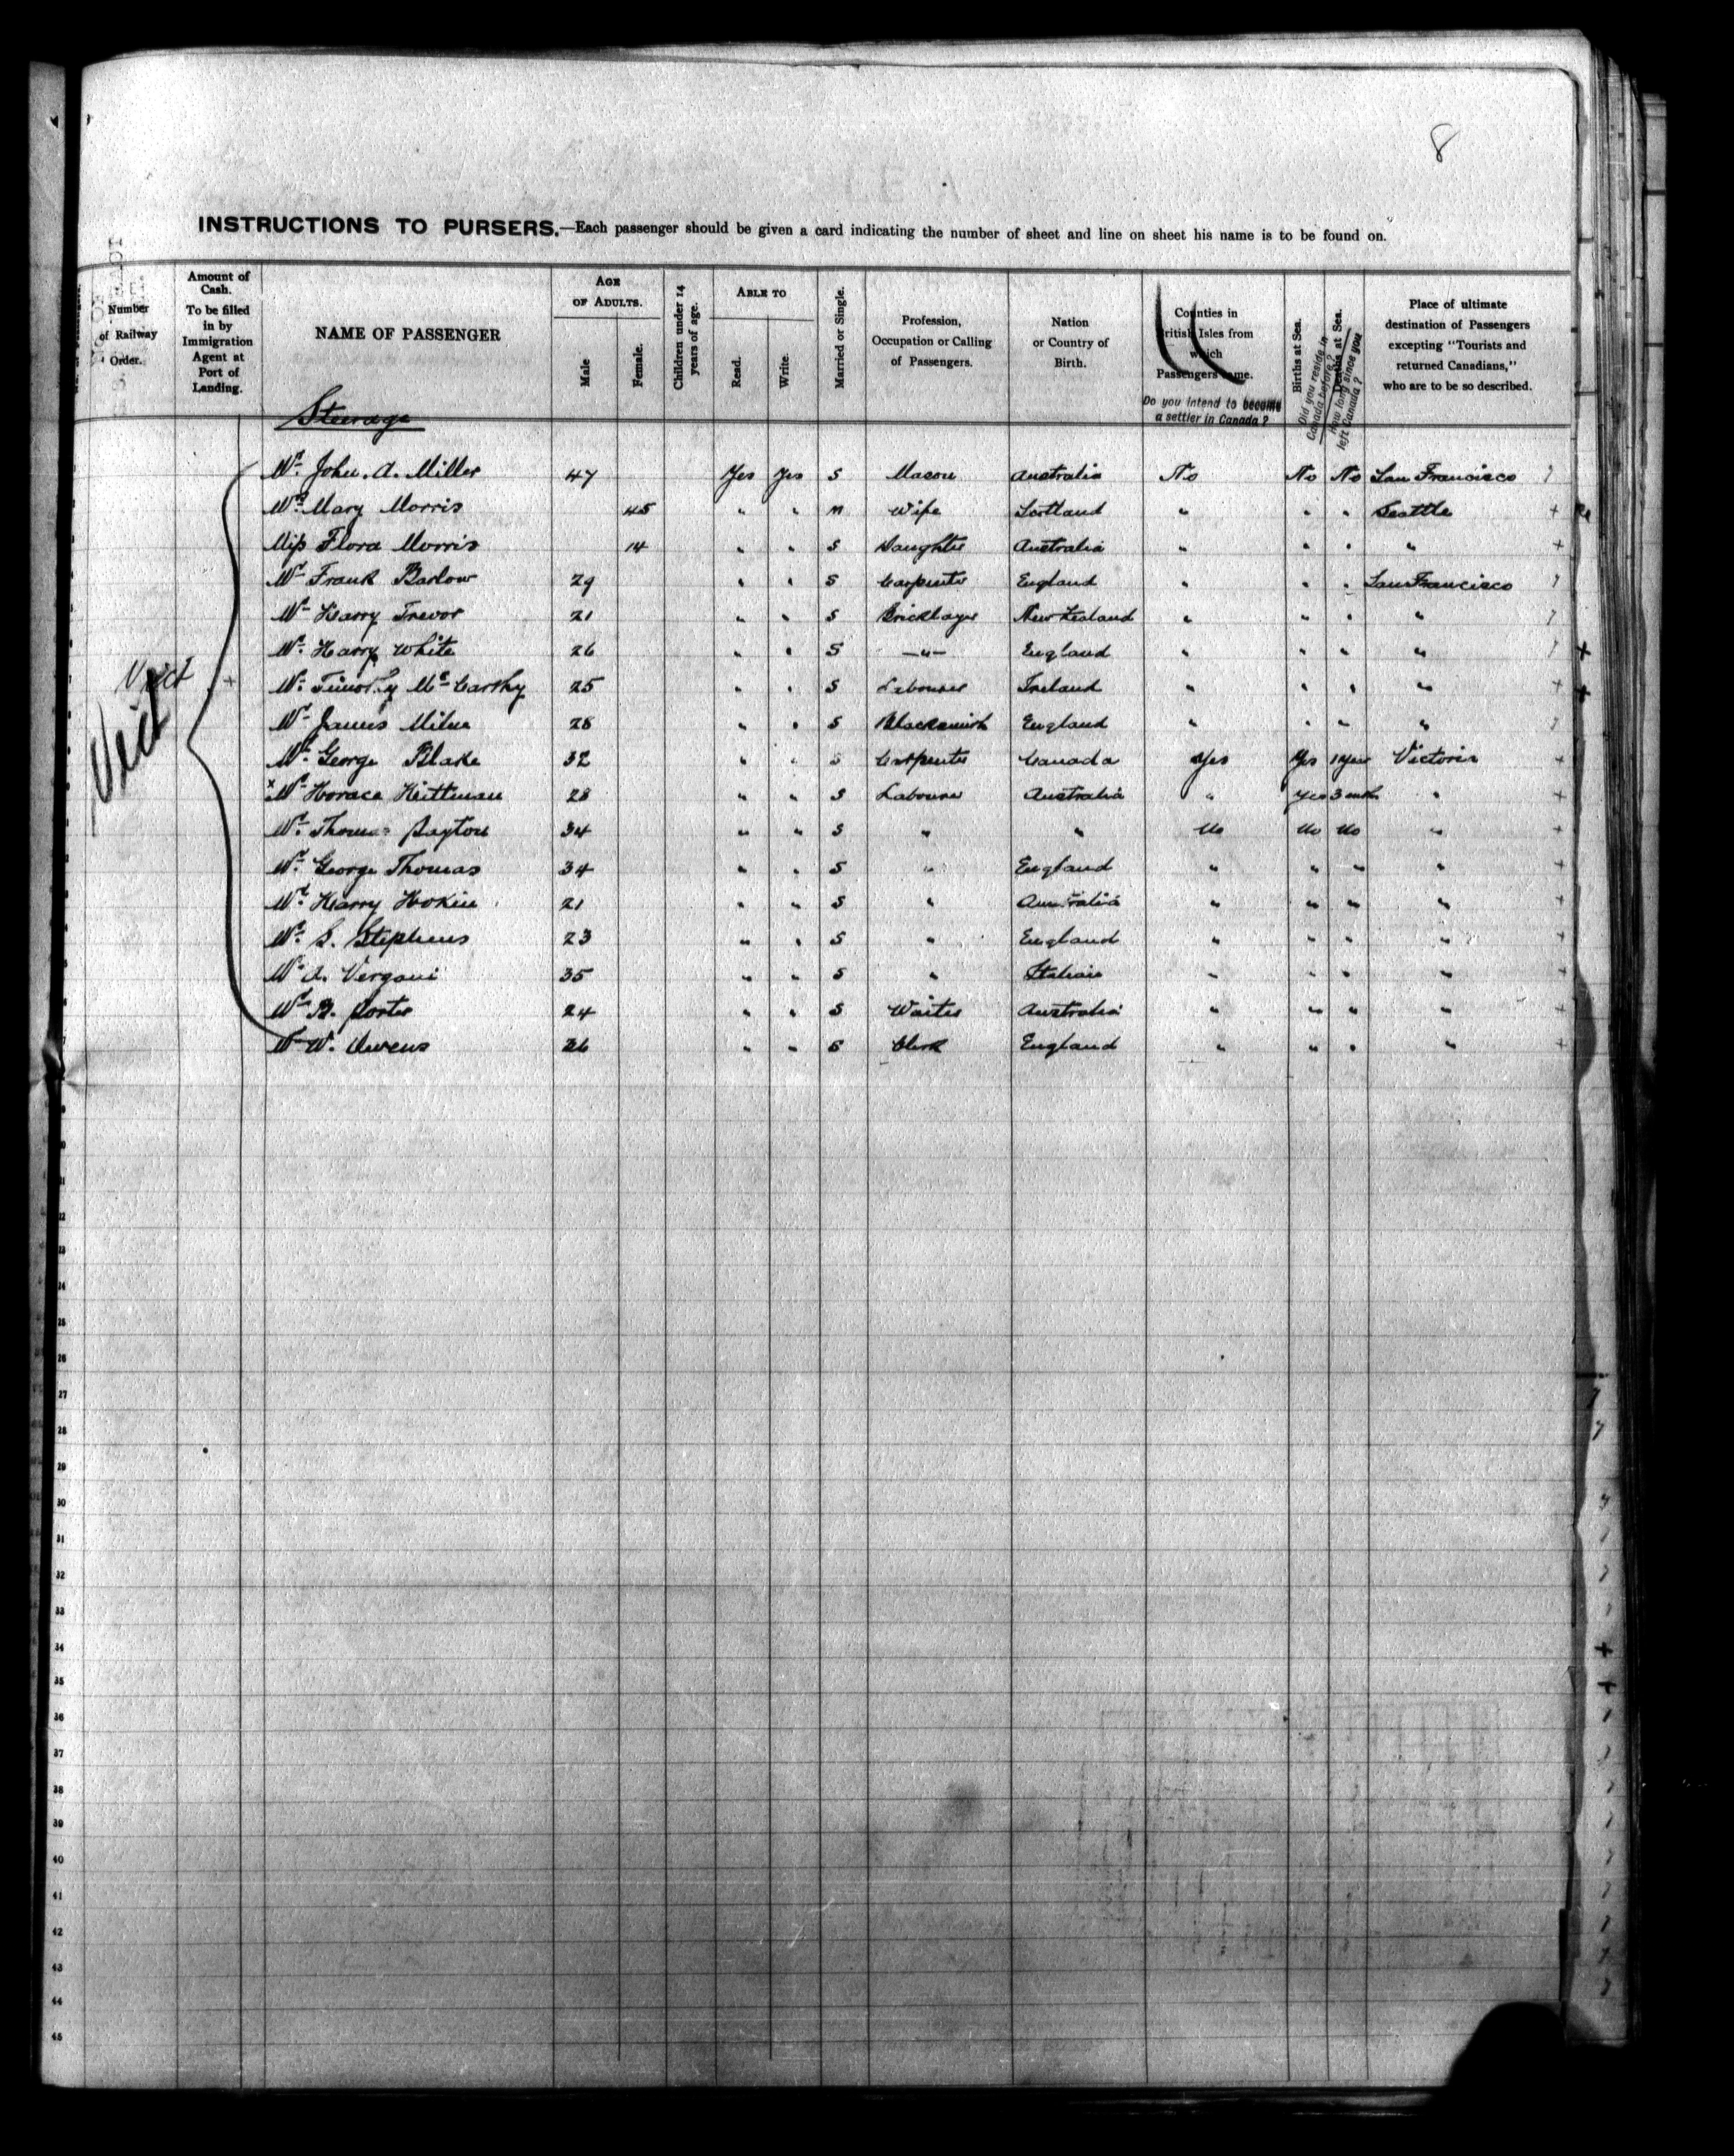 8
INSTRUCTIONS TO PURSERS.—Each passenger should be given a card indicating the number of sheet and line on sheet his name is to be found on.
Number of Railway Order.
Amount of Cash. To be filled in by Immigration Agent at Port of Landing.
NAME OF PASSENGER
AGE OF ADULTS.
Male
Female.
Children under 14 years of age.
ABLE TO
Read.
Write
Married or Single.
Profession, Occupation or Calling of Passengers.
Nation or Country of Birth.
Counties in British Isles from which Passengers came.
Do you intend to become a settler in Canada?
Births at Sea.
Did you reside in Canada before?
Deaths at Sea.
How long since you left Canada?
Place of ultimate destination of Passengers excepting "Tourists and returned Canadians," who are to be so described.
Steerage
Vict
Vict
Mr. John. A. Miller 47 Yes Yes S Mason Australia No No No San Francisco
Mrs. Mary Morris 45 " " M Wife Scotland " " " Seattle +
Miss Flora Morris 14 " " S Daughter Australia " " " " +
Mr. Frank Barlow 29 " " S Carpenter England " " " San Francisco
Mr. Harry Trevor 21 " " S Bricklayer New Zealand " " " "
Mr. Harry White 26 " " S —"— England " " " " +
+ Mr. Timothy McCarthy 25 " " S Labourer Ireland " " " " + +
Mr. James Milne 28 " " S Blacksmith England " " " "
Mr. George Blake 32 " " S Carpenter Canada Yes Yes 1 Year Victoria +
x Mr. Horace Hittman 28 " " S Labourer Australia " Yes 3 mth " +
Mr. Thomas Payton 34 " " S " " No No No " +
Mr. George Thomas 34 " " S " England " " " " +
Mr. Harry Hokin 21 " " S " Australia " " " " +
Mr. S. Stephens 23 " " S " England " " " " +
Mr. A. Vergani 35 " " S " Italian " " " " +
Mr. B. Porter 24 " " S Waiter Australia " " " " +
Mr. W. Owens 26 " " S Clerk England " " " " +
22
23
24
25
26
27
28
29
30
31
32
33
34
35
36
37
38
39
40
41
42
43
44
45